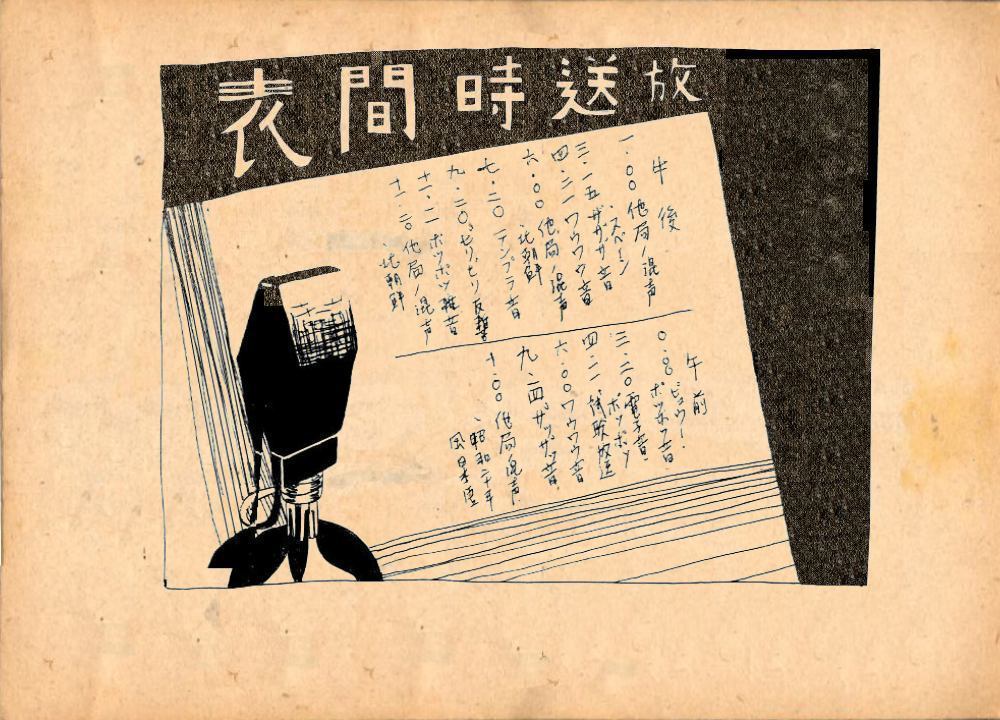 放送時間表
午後
一・〇〇 他局ノ混声
、スペーン
三・一五 ザザザ音
四・二一 ワウワウ音
六・〇〇 他局ノ混声
、北朝鮮
七・二〇 テンプラ音
九・二〇
十一・二一 ボツボツ雑音
十一・二〇 他局ノ混声
北朝鮮
午前
〇・〇 ビュウー・
ボツボツ音
三・二〇 電子音・
ボツボツ
四・二一 試験放送
六・〇〇 ワウウウ音
九・二四 ザッザッ音
十・〇〇 他局混声
、昭和二十年